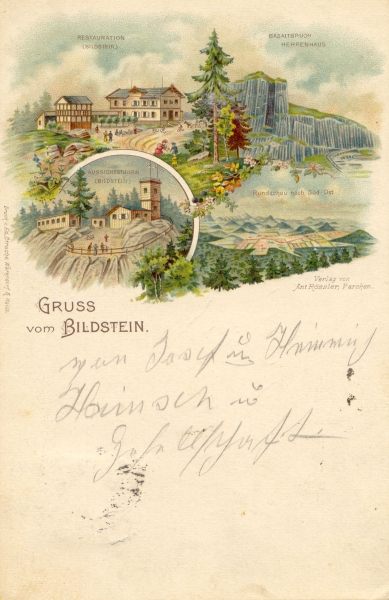 RESTAURATION
(BILDSTEIN)
BASALTBRUCH
HERRENHAUS
AUSSICHTSTHURM
(BILDSTEIN)
Rundschau nach Süd-Ost
Verlag von
Ant. Rössler, Parchen.
GRUSS
VOM BILDSTEIN.
von Josef u Heinrich
Heinsch u
Gesellschaft